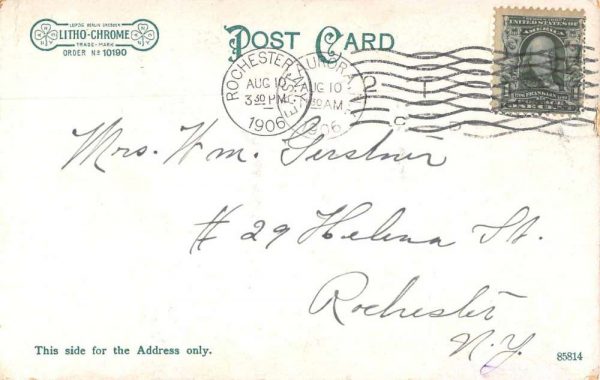 LEIPZIG BERLIN DRESDEN
LITHO-CHROME
TRADE-MARK
ORDER No 10190
POST CARD
ROCHESTER, N.Y.
AUG 10
3 30 PM
1906
AUG 10
30 AM
1906
UNITED STATES OF AMERICA
Mrs. Wm. Gerstner
# 29 Helena St.
Rochester
N.Y.
This side for the Address only.
85814